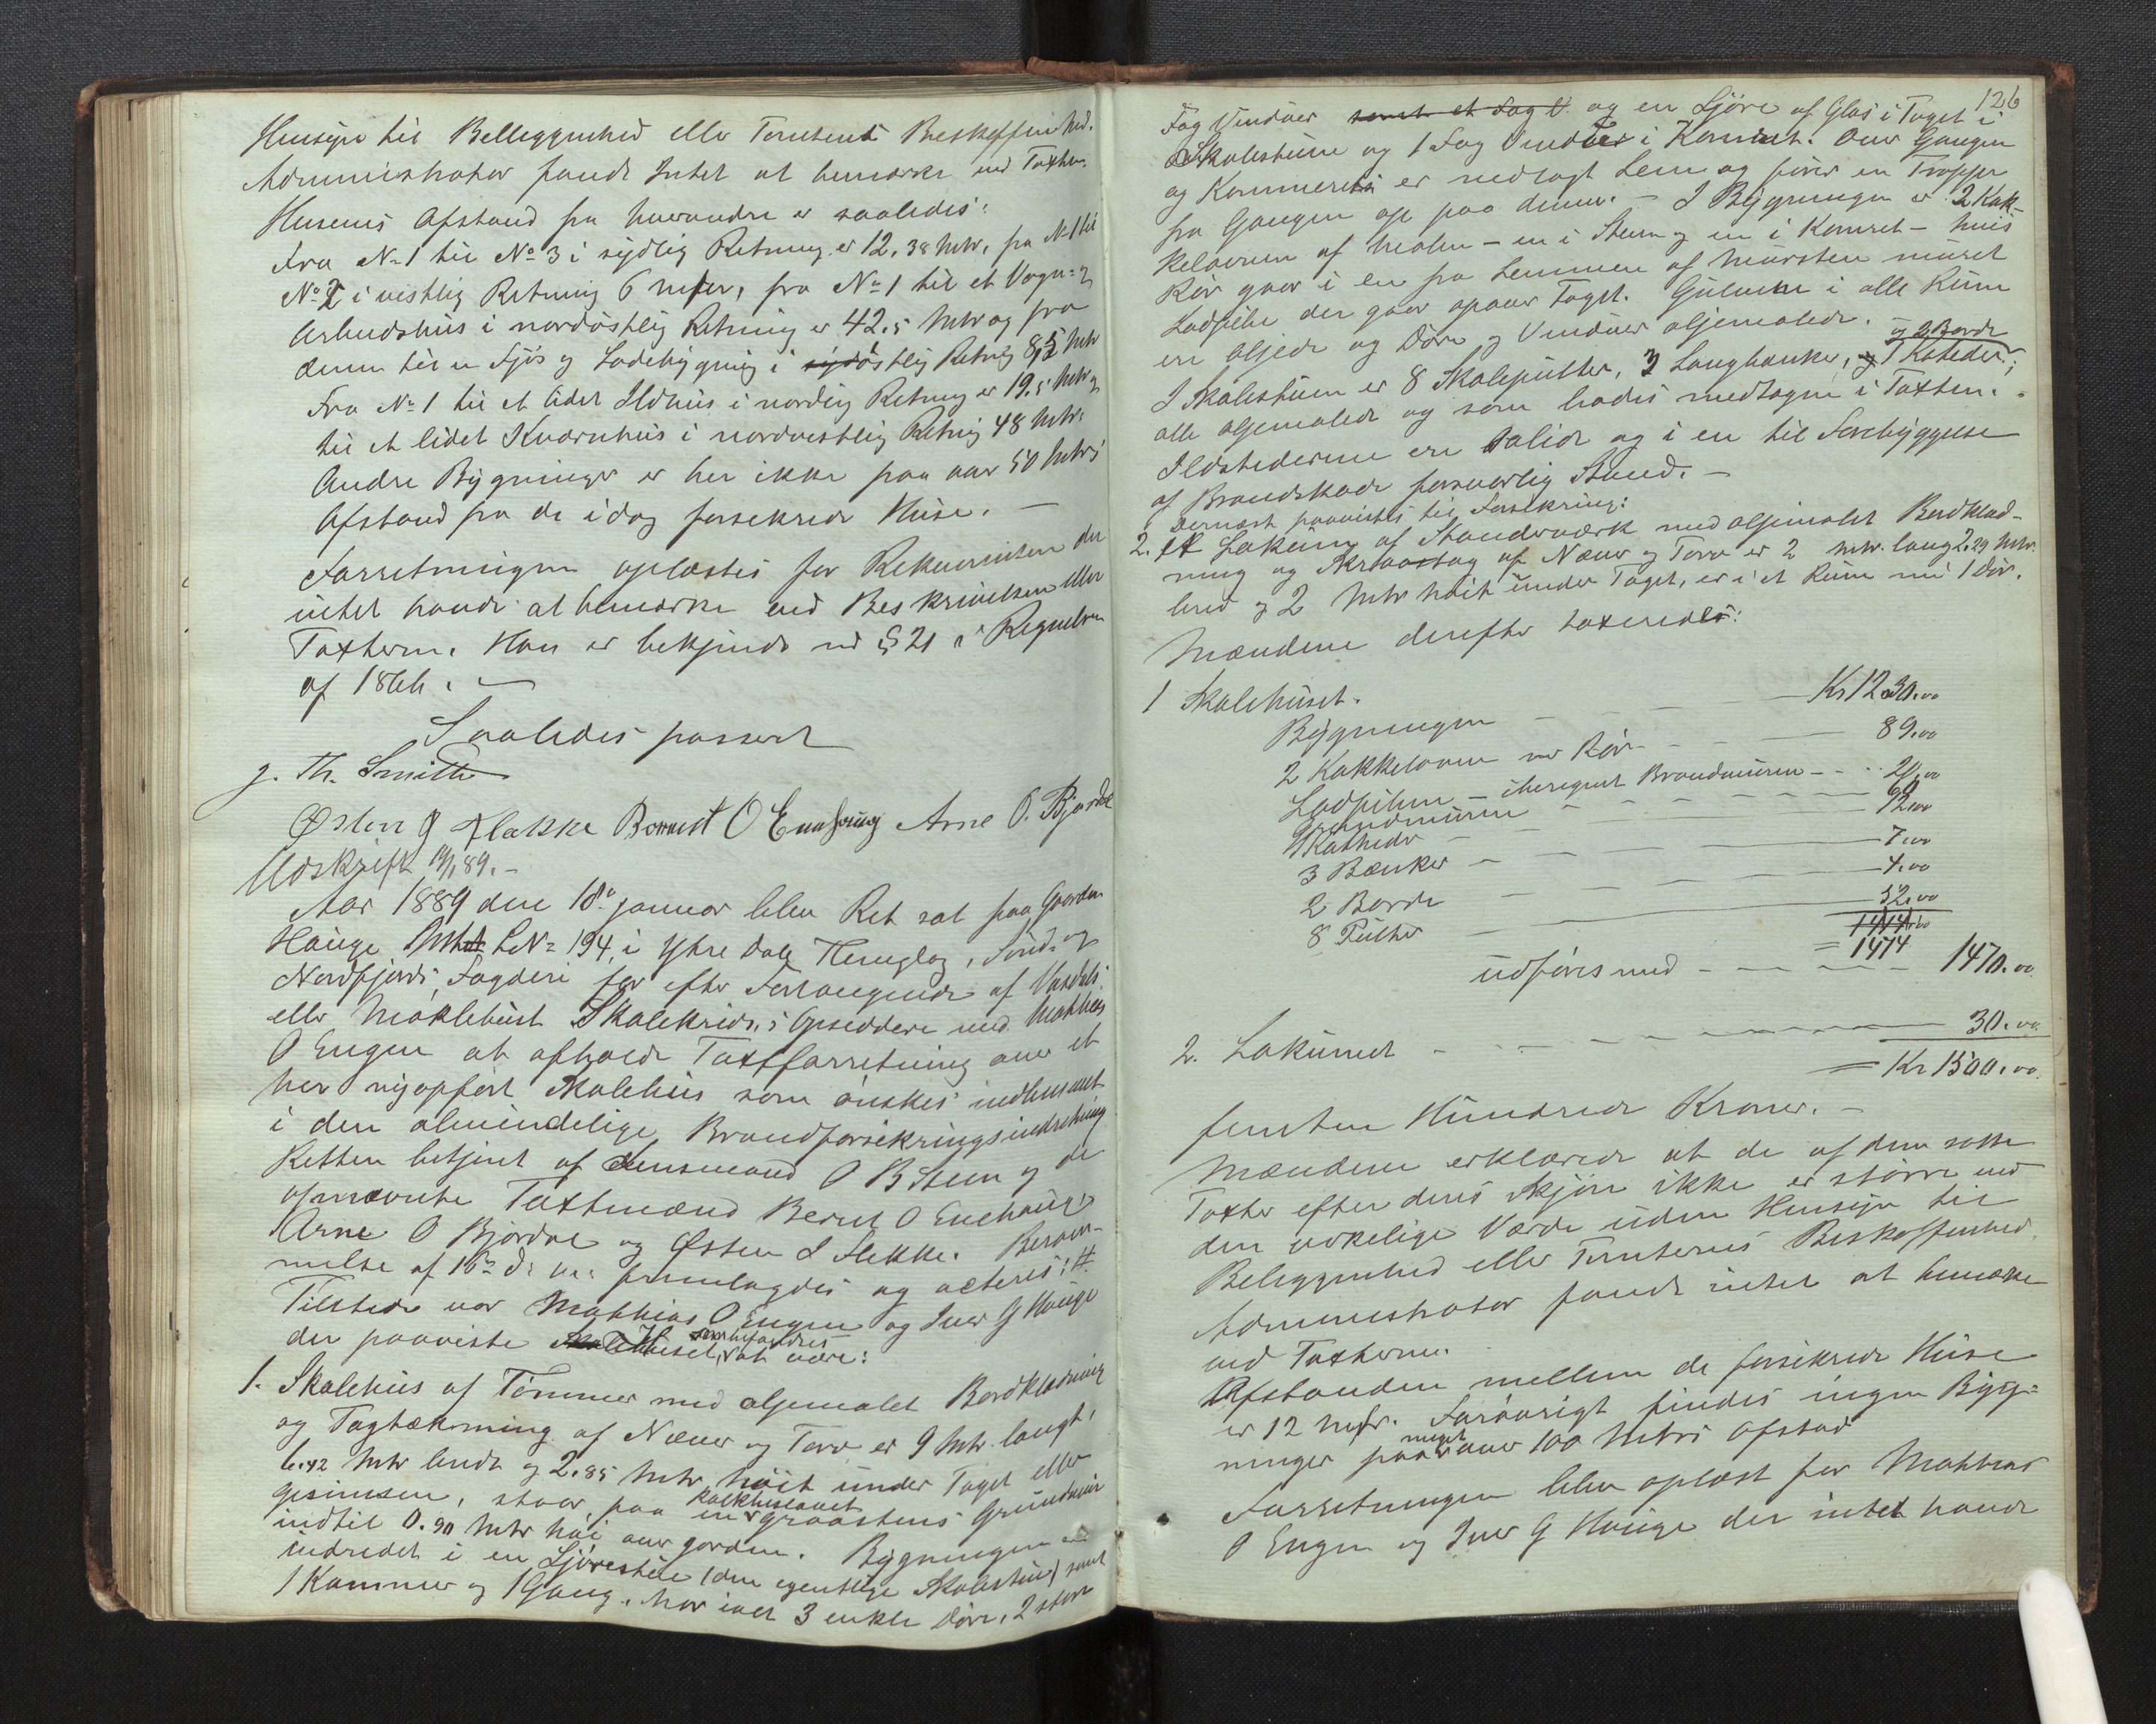 Hensyn til Beliggenhed eller Tomtens Beskaffenhed.
Administrator fandt Intet at bemærke ved Taxten.
Husenes Afstand fra hverandre er saaledes:
Fra No 1 til No 3 i sydlig Retning er 12,38 Mtr, fra No 1 til
No 2 i vestlig Retning 6 Meter, fra No 1 til et Vogn= og
Arbeidshus i nordöstlig Retning er 42.5 Mtr og fra
denne til en Fjös og Ladebygning i sydöstlig Retning 8,5 Mtr
Fra No 1 til et lidet Ildhus i nordlig Retning er 19.5 Mtr og
til et lidet Kværnhus i nordvestlig Retnig 48 Mtr.
Andre Bygninger er her ikke paa over 50 Mtrs
Afstand fra de idag forsikrede Huse. —
Forretningen oplæstes for Rekvirenten der
intet havde at bemærke ved Beskrivelsen eller
Taxterne. Han er bekjendt med § 21 i Reglerne
af 1846. —
Saaledes passert
J. Th. Smith
Østen J Flække Bernt O Enehaug Arne O. Bjørdal
Udskrift 19/1 89. —
Aar 1889 den 18de januar blev Ret sat paa Gaarden
Hauge LNo 194, i Ytre Dale Thinglag, Sönd- og
Nordfjords Fogderi for efter Forlangende af Vasdals
eller Möklebust Skolekreds, i Gjseddere ved Mathias
O Engen at afholde Taxtforretning over et
her nyopfört Skolehus som önskes indlemmet
i den almindelige Brandforsikringsindretning
Retten betjent af Lensmand O B Steen og de
opnævnte Taxtmænd Bernt O Enehaug,
Arne O Björdal og Østen J Flekke. Beram-
melse af 16de ds. fremlagdes og acteres: #
Tilstede var Mathias O Engen og Iver G Hauge
der paaviste Skolehuset, som befandtes at være:
1. Skolehus af Tömmer med oljemalet Bordklædning
og Tagtækning af Næver og Torv er 9 Mtr. langt,
6.42 Mtr bredt og 2.85 Mtr höit under Taget eller
gesimsen, staar paa en kalkbeslaaet graastens Grundmur
indtil 0.90 Mtr höi over jorden. Bygningen er
indredet i en Sjörestue (den egentlige Skolestue) samt
1 Kammer og 1 Gang, har ialt 3 enkle Döre, 2 store
126
Fag Vinduer samt et Fag V. og en Ljöre af Glas i Taget i
Skolestuen og 1 Fag Vinduer i Kamret. Over Gangen
og Kammeret er nedlagt Lem og förer en Trappe
fra Gangen op paa denne. — I Bygningen er 2 Kak-
kelovne af Malm — en i Stuen og en i Kamret — hvis
Rör gaar i en fra Lemmen af Mursten muret
Ladpibe der gaar opover Taget. Gulvene i alle Rum
ere oljede og Döre og Vinduer oljemalede.
I Skolestuen er 8 Skolepulter, 3 Langbænker, og 1 Kateder, og 2 Borde
alle oljemalede og som hades medtagne i Taxten.
Ildstederne ere solide og i en til Forebyggelse
af Brandskade forsvarlig Stand. —
Dernæst paavistes til Forsikring:
2. Et Lokum af Standerværk med oljemalet Bordklæd-
ning og Skraatag af Næver og Torv er 2 Mtr. lang 2.29 Mtr.
bred og 2 Mtr höit under Taget, er i et Rum med 1 Dör.
Mændene derefter taxeredes:
1 Skolehuset.
Bygningen — — — Kr 1230.00
2 Kakkelovne med Rör — — 89.00
Ladpiben — iberegnet Brandmuren — — 20.00
Grundmuren — — — 60.
1 Katheder — — — 12.00
3 Bænker — — — 7.00
2 Borde — — — 4.00
8 Pulter — — — 52.00
1414.00
= 1474
udföres med — — — 1470.00
2. Lokumet — — — 30.00
= Kr 1500.00
femten Hundrede Kroner. —
Mændene erklærede at de af dem satte
Taxter efter deres Skjön ikke er större end
den virkelige Værdi uden Hensyn til
Beliggenhed eller Tomternes Beskaffenhed.
Administrator fandt intet at bemærke
ved Taxterne.
Afstanden mellem de forsikrede Huse
er 12 Mtr. Forövrigt findes ingen Byg=
ninger paa meget over 100 Mtrs Afstad
Forretningen blev oplæst for Mathias
O Engen og Iver G Hauge der intet havde